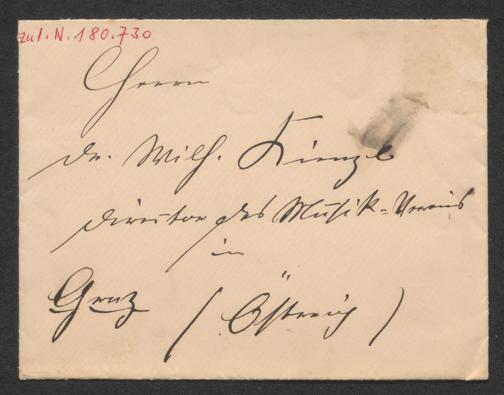 zu I.N. 180.730
Herrn
Dr. Wilh. Kienzl
Director des Musik=Vereins
in
Graz (Östreich)